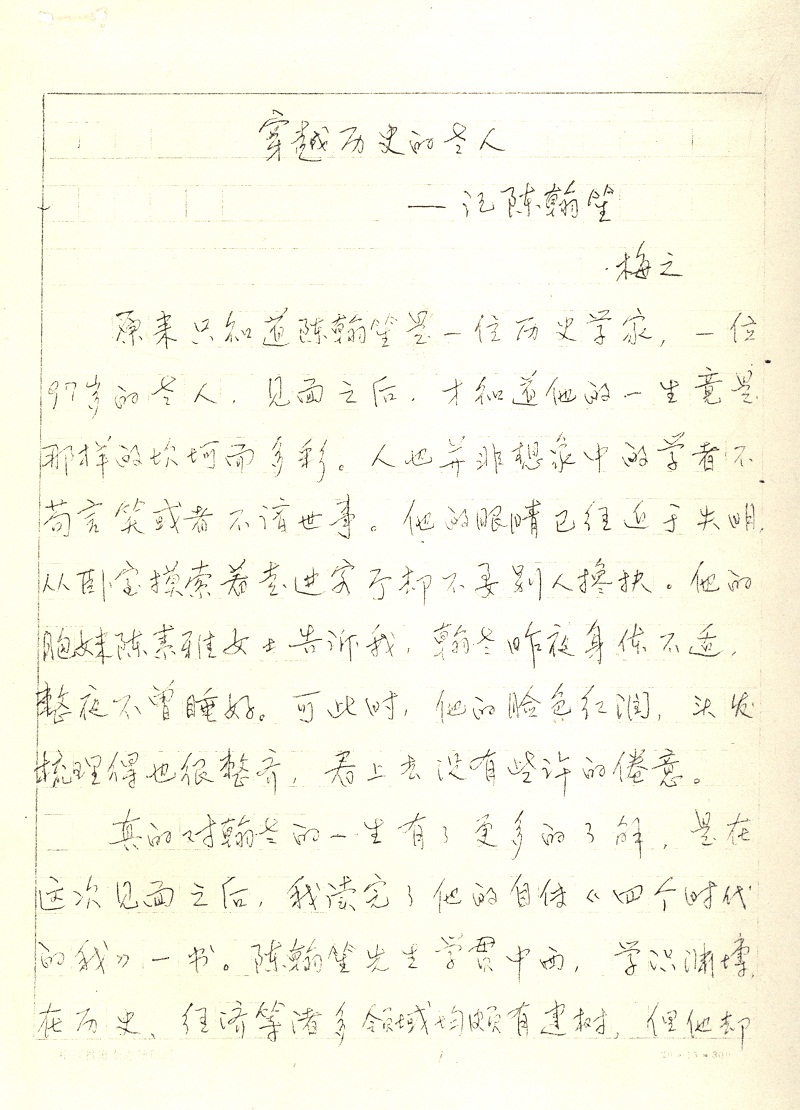 穿越历史的老人
——记陈翰笙
梅之
原来只知道陈翰笙是一位历史学家，一位
97岁的老人，见面之后，才知道他的一生竟是
那样的坎坷而多彩。人也并非想象中的学者不
苟言笑或者不谙世事。他的眼睛已经近于失明，
从卧室摸索着走进客厅却不要别人搀扶。他的
胞妹陈素雅女士告诉我，翰老昨夜身体不适，
整夜不曾睡好。可此时，他的脸色红润，头发
梳理得也很整齐，看上去没有些许的倦意。
真的对翰老的一生有了更多的了解，是在
这次见面之后，我读完了他的自传《四个时代
的我》一书。陈翰笙先生学贯中西，学识渊博，
在历史、经济等诸多领域均颇有建树，但他却